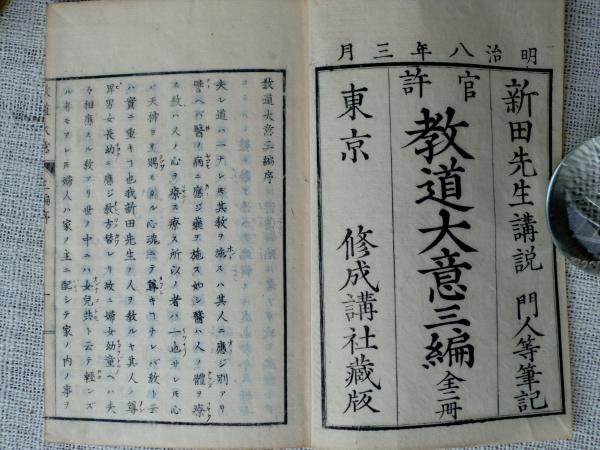 明治八年三月
官許
新田先生講説 門人等筆記
教道大意三編 全二冊
東京 修成講社藏版
教道大意三編序
夫レ道ハ一ナレ𪜈其教ヲ施スハ其人ニ應ジ別アリ
譬ヘバ醫ノ病ニ應ジ藥ヲ施ス如シ醫ハ人ノ體ヲ療
ス教ハ人ノ心ヲ療ス療ス所以ノ者ハ一也サレ𪜈心
ハ天神ヨリ賜モノル心魂ニテ尊キコナレバ教ト云
ハ實ニ重キコ也我新田先生ノ人ヲ教ルヤ其人ノ尊
卑男女長幼ニ應ジ教方替レリ故ニ婦女幼童ヘハ夫
々相應スル教アリ世ノ中ニハ女兒共ト云テ輕ンズ
ル者モアレ𪜈婦人ハ家ノ主ニ配シテ家ノ内ノ事ヲ